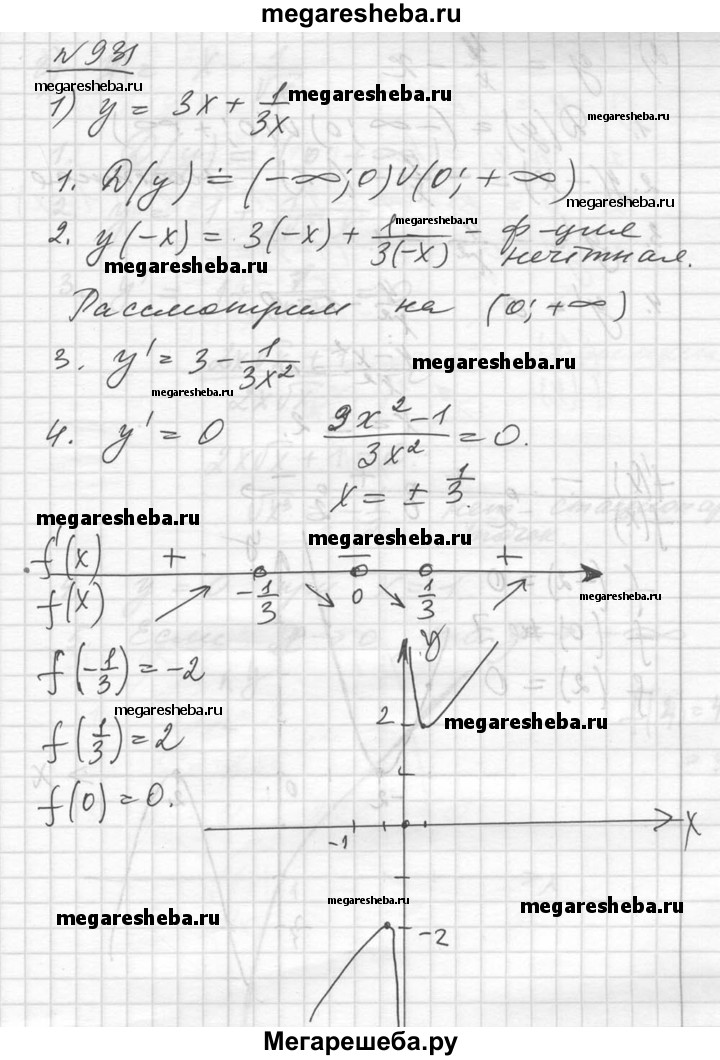 megaresheba.ru
№931
megaresheba.ru
1) y = 3x + 1/3x
megaresheba.ru
megaresheba.ru
1. D(y) = (-∞; 0) ∪ (0; +∞)
megaresheba.ru
2. y(-x) = 3(-x) + 1/3(-x) - ф-ция нечётная.
megaresheba.ru
megaresheba.ru
Рассмотрим на (0; +∞)
3. y' = 3 - 1/3x²
megaresheba.ru
megaresheba.ru
4. y' = 0 9x²-1/3x² = 0.
x = ± 1/3.
megaresheba.ru
megaresheba.ru
f'(x) + − +
f(x) -1/3 0 1/3
megaresheba.ru
f(-1/3) = -2
y
megaresheba.ru
2
megaresheba.ru
f(1/3) = 2
f(0) = 0.
-1
x
megaresheba.ru
megaresheba.ru
megaresheba.ru
-2
Мегарешеба.ру